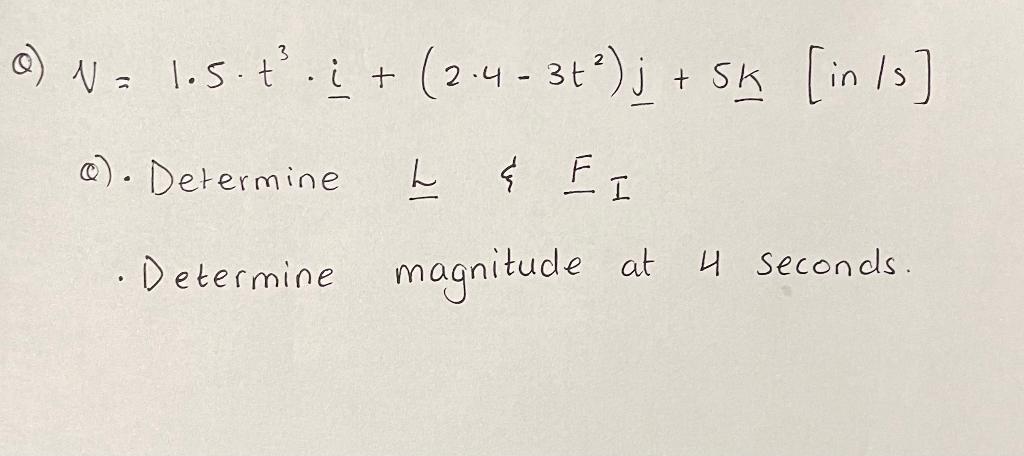 Q) V = 1.5·t³·i + (2.4 - 3t²)j + 5k [in/s]
Q). Determine L & F_I
· Determine magnitude at 4 seconds.